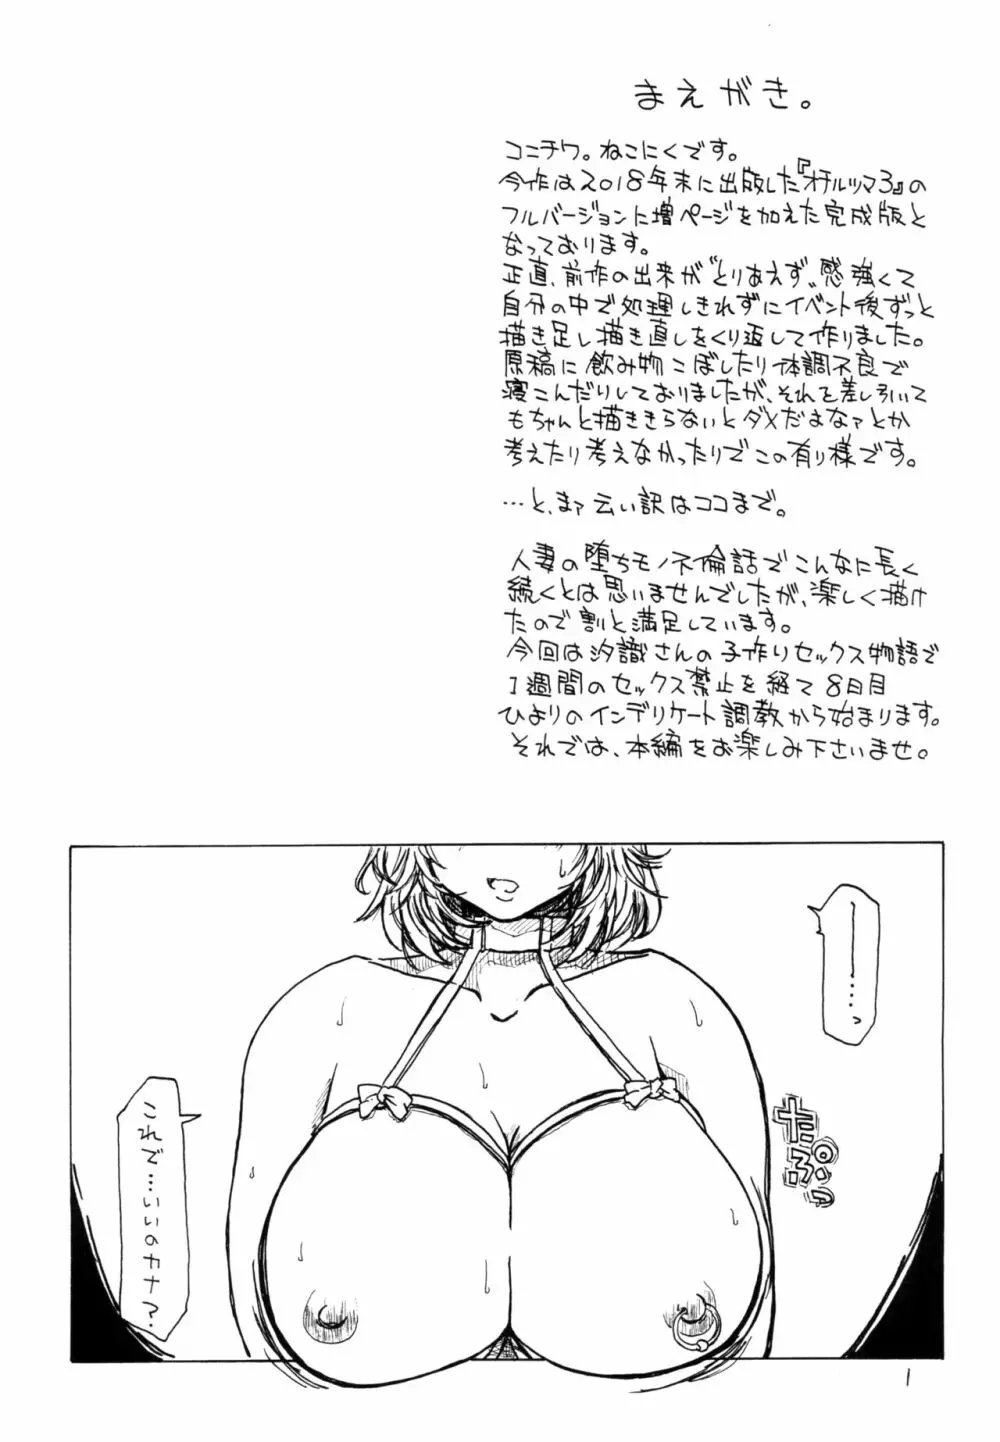 まえがき。
コニチワ。ねこにくです。
今作は2018年末に出版した『オチルツマ3』の
フルバージョンに増ページを加えた完成版と
なっております。
正直、前作の出来が“とりあえず”感強くて
自分の中で処理しきれずにイベント後ずっと
描き足し描き直しをくり返して作りました。
原稿に飲み物こぼしたり体調不良で
寝こんだりしておりましたが、それを差し引いて
もちゃんと描ききらないとダメだよなァとか
考えたり考えなかったりでこの有り様です。
…と、まァ云い訳はココまで。
人妻の堕ちモノ不倫話でこんなに長く
続くとは思いませんでしたが、楽しく描け
たので割と満足しています。
今回は汐識さんの子作りセックス物語で
1週間のセックス禁止を経て8日目
ひよりのインデリケート調教から始まります。
それでは、本編をお楽しみ下さいませ。
――…っ
たぷっ
これで…いいのカナ?
1